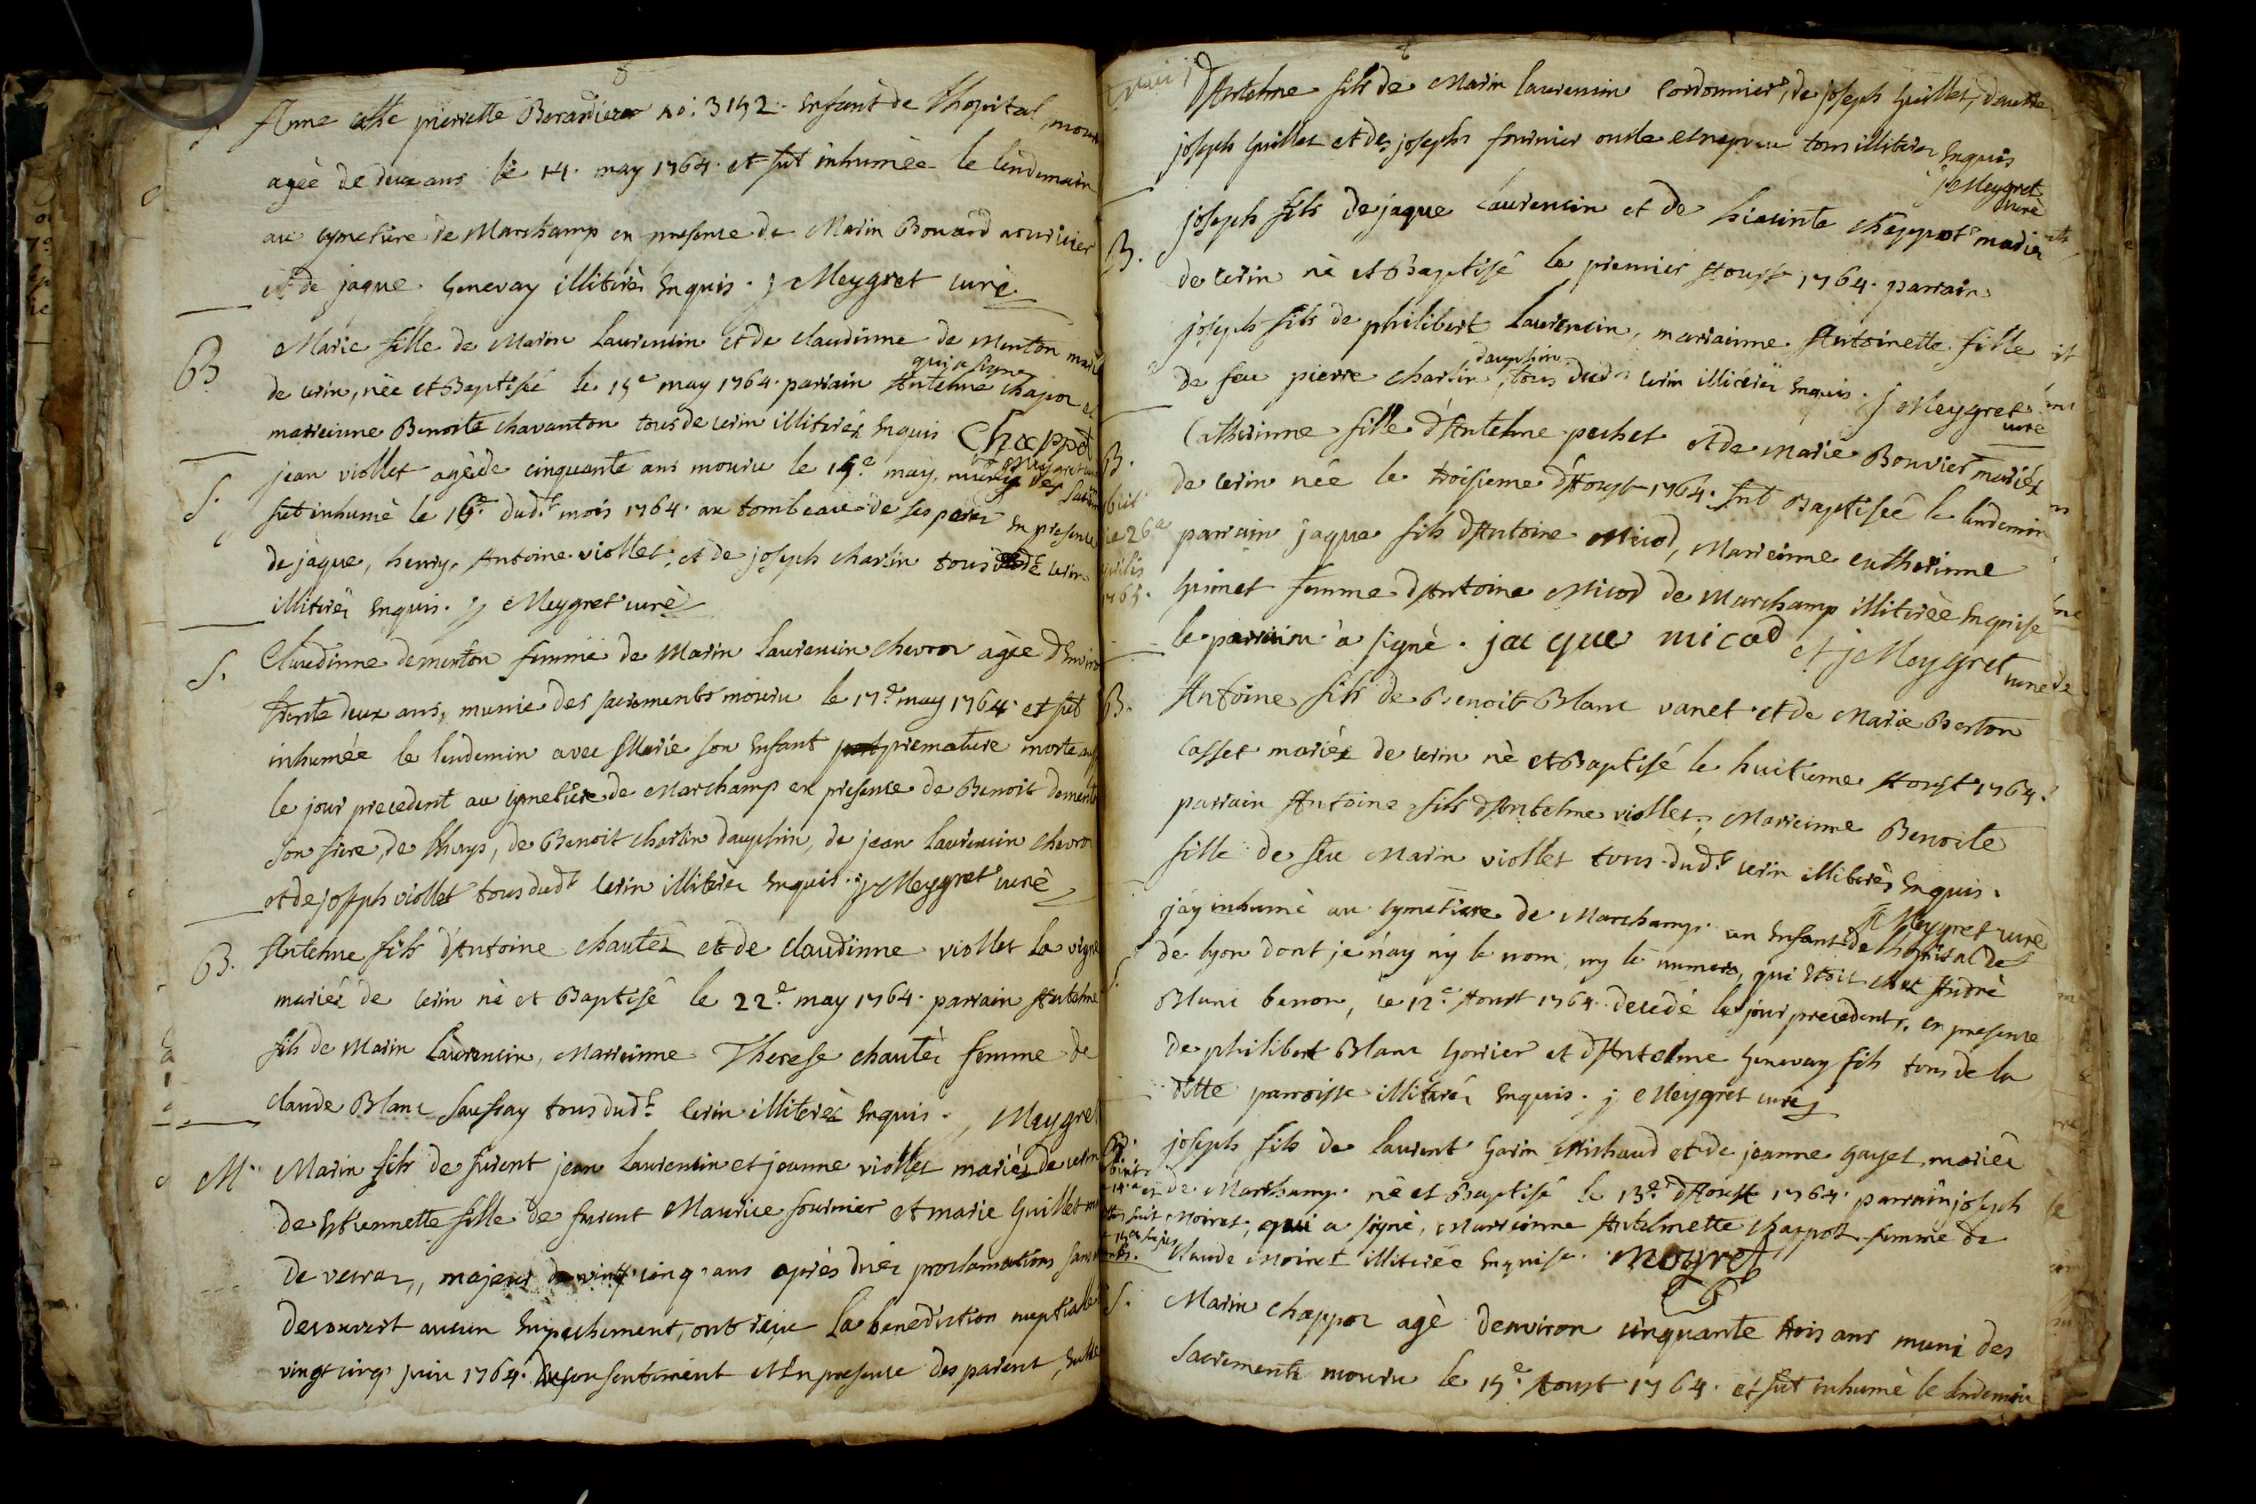 8
Anne pierrette Berardier no: 3142. Enfant de lhopital
agèe de deux ans le 14. may 1764. et fut inhumèe le lendemain
au cymetiere de Marchamp en presence de Marin Bonard nouricier
et de jaque Genevay illiterés Enquis. j Meygret curè
B Marie fille de Marin Laurencin et de claudinne de Menton
de cerin, nèe et Baptisée le 15e may 1764. parrain Antelme chapot et
qui a signe
marreinne Benoite chavanton tous de cerin illiterés Enquis Chappot
S. jean viollet agè de cinquante ans mouru le 15e may, muny des
fut inhumè le 16e dudt mois 1764. au tombeau de ses peres En presence
de jaque, henry, Antoine viollet, et de joseph charlin tous dudt cerin
illiterés Enquis. j Meygret curè
S. Claudinne dementon femme de Marin Laurencin chevron agèe
trente deux ans, munie des sacrements mouru le 17e may 1764. et fut
inhumèe le lendemin avec Marie son Enfant premature morte
le jour precedent au cymetiere de Marchamp en presence de Benoit
son frere, de lhuys, de Benoit charlin dauphin, de jean laurencin chevron
et de joseph viollet tous dudt cerin illiterés Enquis. j Meygret curè
B. Antelme fils d'Antoine chautés et de claudinne viollet la vigne
mariés de cerin nè et Baptisé le 22e may 1764. parrain Antelme
fils de Marin Laurencin, Marreinne Therese chautés femme de
claude Blanc saussay tous dudt cerin illiterés Enquis. j Meygret
M. Marin fils de furent jean Laurencin et jeanne viollet mariés de cerin
de Etiennette fille de furent Maurice fournier et marie Guillet
majeurs de vingt cinq ans après dües proclamations sans
decouvert aucun Empechement, ont reçu la benediction nuptiale
vingt cinq juin 1764. du consentiment et En presence des parent,
d'Antelme fils de Marin laurencin Cordonnier, de joseph Guillet, dautre
joseph Guillet et de joseph fournier oncle et nepveu tous illiterés Enquis
j Meygret
curè
B. joseph fils de jaque Laurencin et de hiacinte chappot mariés
de cerin nè et Baptisé le premier Aoust 1764. parrain
joseph fils de philibert Laurencin, marrainne Antoinette fille
de feu pierre charlin dauphin, tous dudt cerin illiterés Enquis. j Meygret
curè
B. Catherinne fille d'Antelme pechet et de Marie Bouvier mariés
de cerin nèe le troisieme d'Aoust 1764. fut Baptisèe le lendemin
parrain jaque fils d'Antoine Micod, Marreinne catherinne
Guimet femme d'Antoine Micod de Marchamp illiterèe Enquise
le parrain a signè. jac que micod et j Meygret curè
obiit
26a
aprilis
1765.
B. Antoine fils de Benoit Blanc vanet et de Marie Berlon
casset mariés de cerin nè et Baptisé le huitieme Aoust 1764.
parrain Antoine fils d'Antelme viollet, Marreinne Benoite
fille de feu Marin viollet tous dudt cerin illiterés Enquis.
j Meygret curè
S. jay inhumè au cymetiere de Marchamp un Enfant de lhopital de
de lyon dont je n'ay ny le nom, ny le numero, qui Etoit chez Andrè
Blanc benon, le 12e Aoust 1764. decedé le jour precedent, en presence
de philibert Blanc Gorrier et d'Antelme Genevay fils tous de la
ditte parroisse illiterés Enquis. j Meygret curè
B. joseph fils de laurent Garin Michaud et de jeanne Gayet mariés
de Marchamp nè et Baptisé le 13e d'Aoust 1764. parrain joseph
Moiret, qui a signè, Marreinne Antelmette chappot femme de
claude Moiret illiterèe Enquise. Moyret
S. Marin chappot agè denviron cinquante trois ans muni des
Sacrements mouru le 15e Aoust 1764. et fut inhumè le lendemin